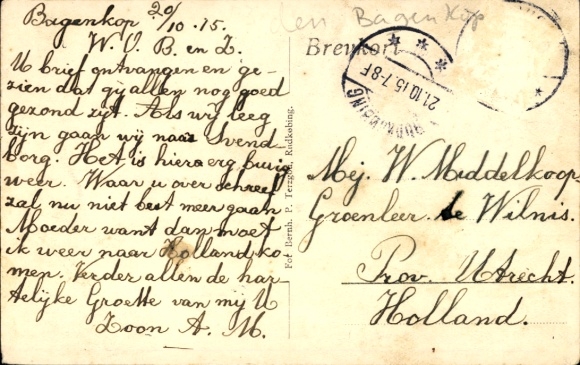 Bagenkop 20/10.15.
W. V. B. en Z.
U brief ontvangen en ge-
zien dat gy allen nog goed
gezond zyt. Als wy leeg
zyn gaan wij naar Svend-
borg. Het is hier erg buiig
weer. Waar u over schreef
zal nu niet best meer gaan
Moeder want dan moet
ik weer naar Holland ko-
men. Verder allen de har-
telijke Groette van mij U
Zoon A. M.
Bagenkop
Brevkort
21.10.15.7-8F
RUDKØBING
Fot Bernh. P. Terzgol, Rudkøbing.
Mej. W. Meddelkoop
Groenleer. te Wilnis.
Prov. Utrecht.
Holland.